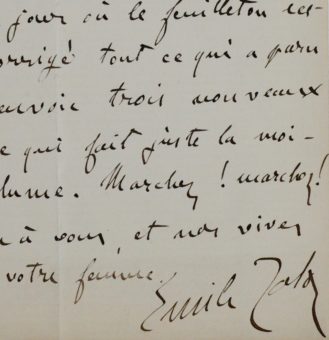 jour où le feuilleton ces-
orrigé tout ce qui a paru
envoie trois nouveaux
e qui fait juste la moi-
lume. Marchez ! marchez !
à vous, et nos vives
votre femme
Emile Zola